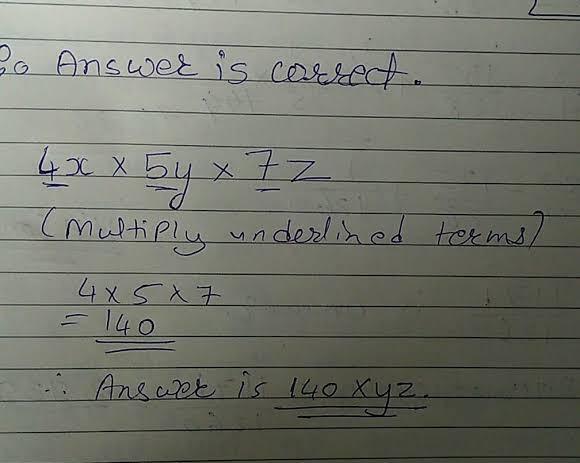 So Answer is correct.
4x × 5y × 7z
(Multiply underlined terms)
4 × 5 × 7
= 140
∴ Answer is 140xyz.